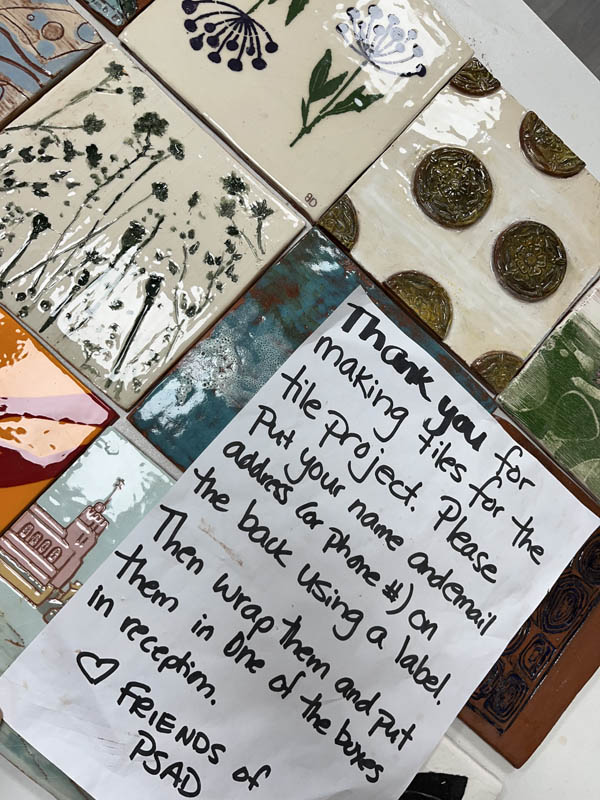 Thank you for
making tiles for the
tile project. Please
Put your name and email
address (or phone #) on
the back using a label.
Then wrap them and put
them in one of the boxes
in reception.
♡ FRIENDS of
PSAD